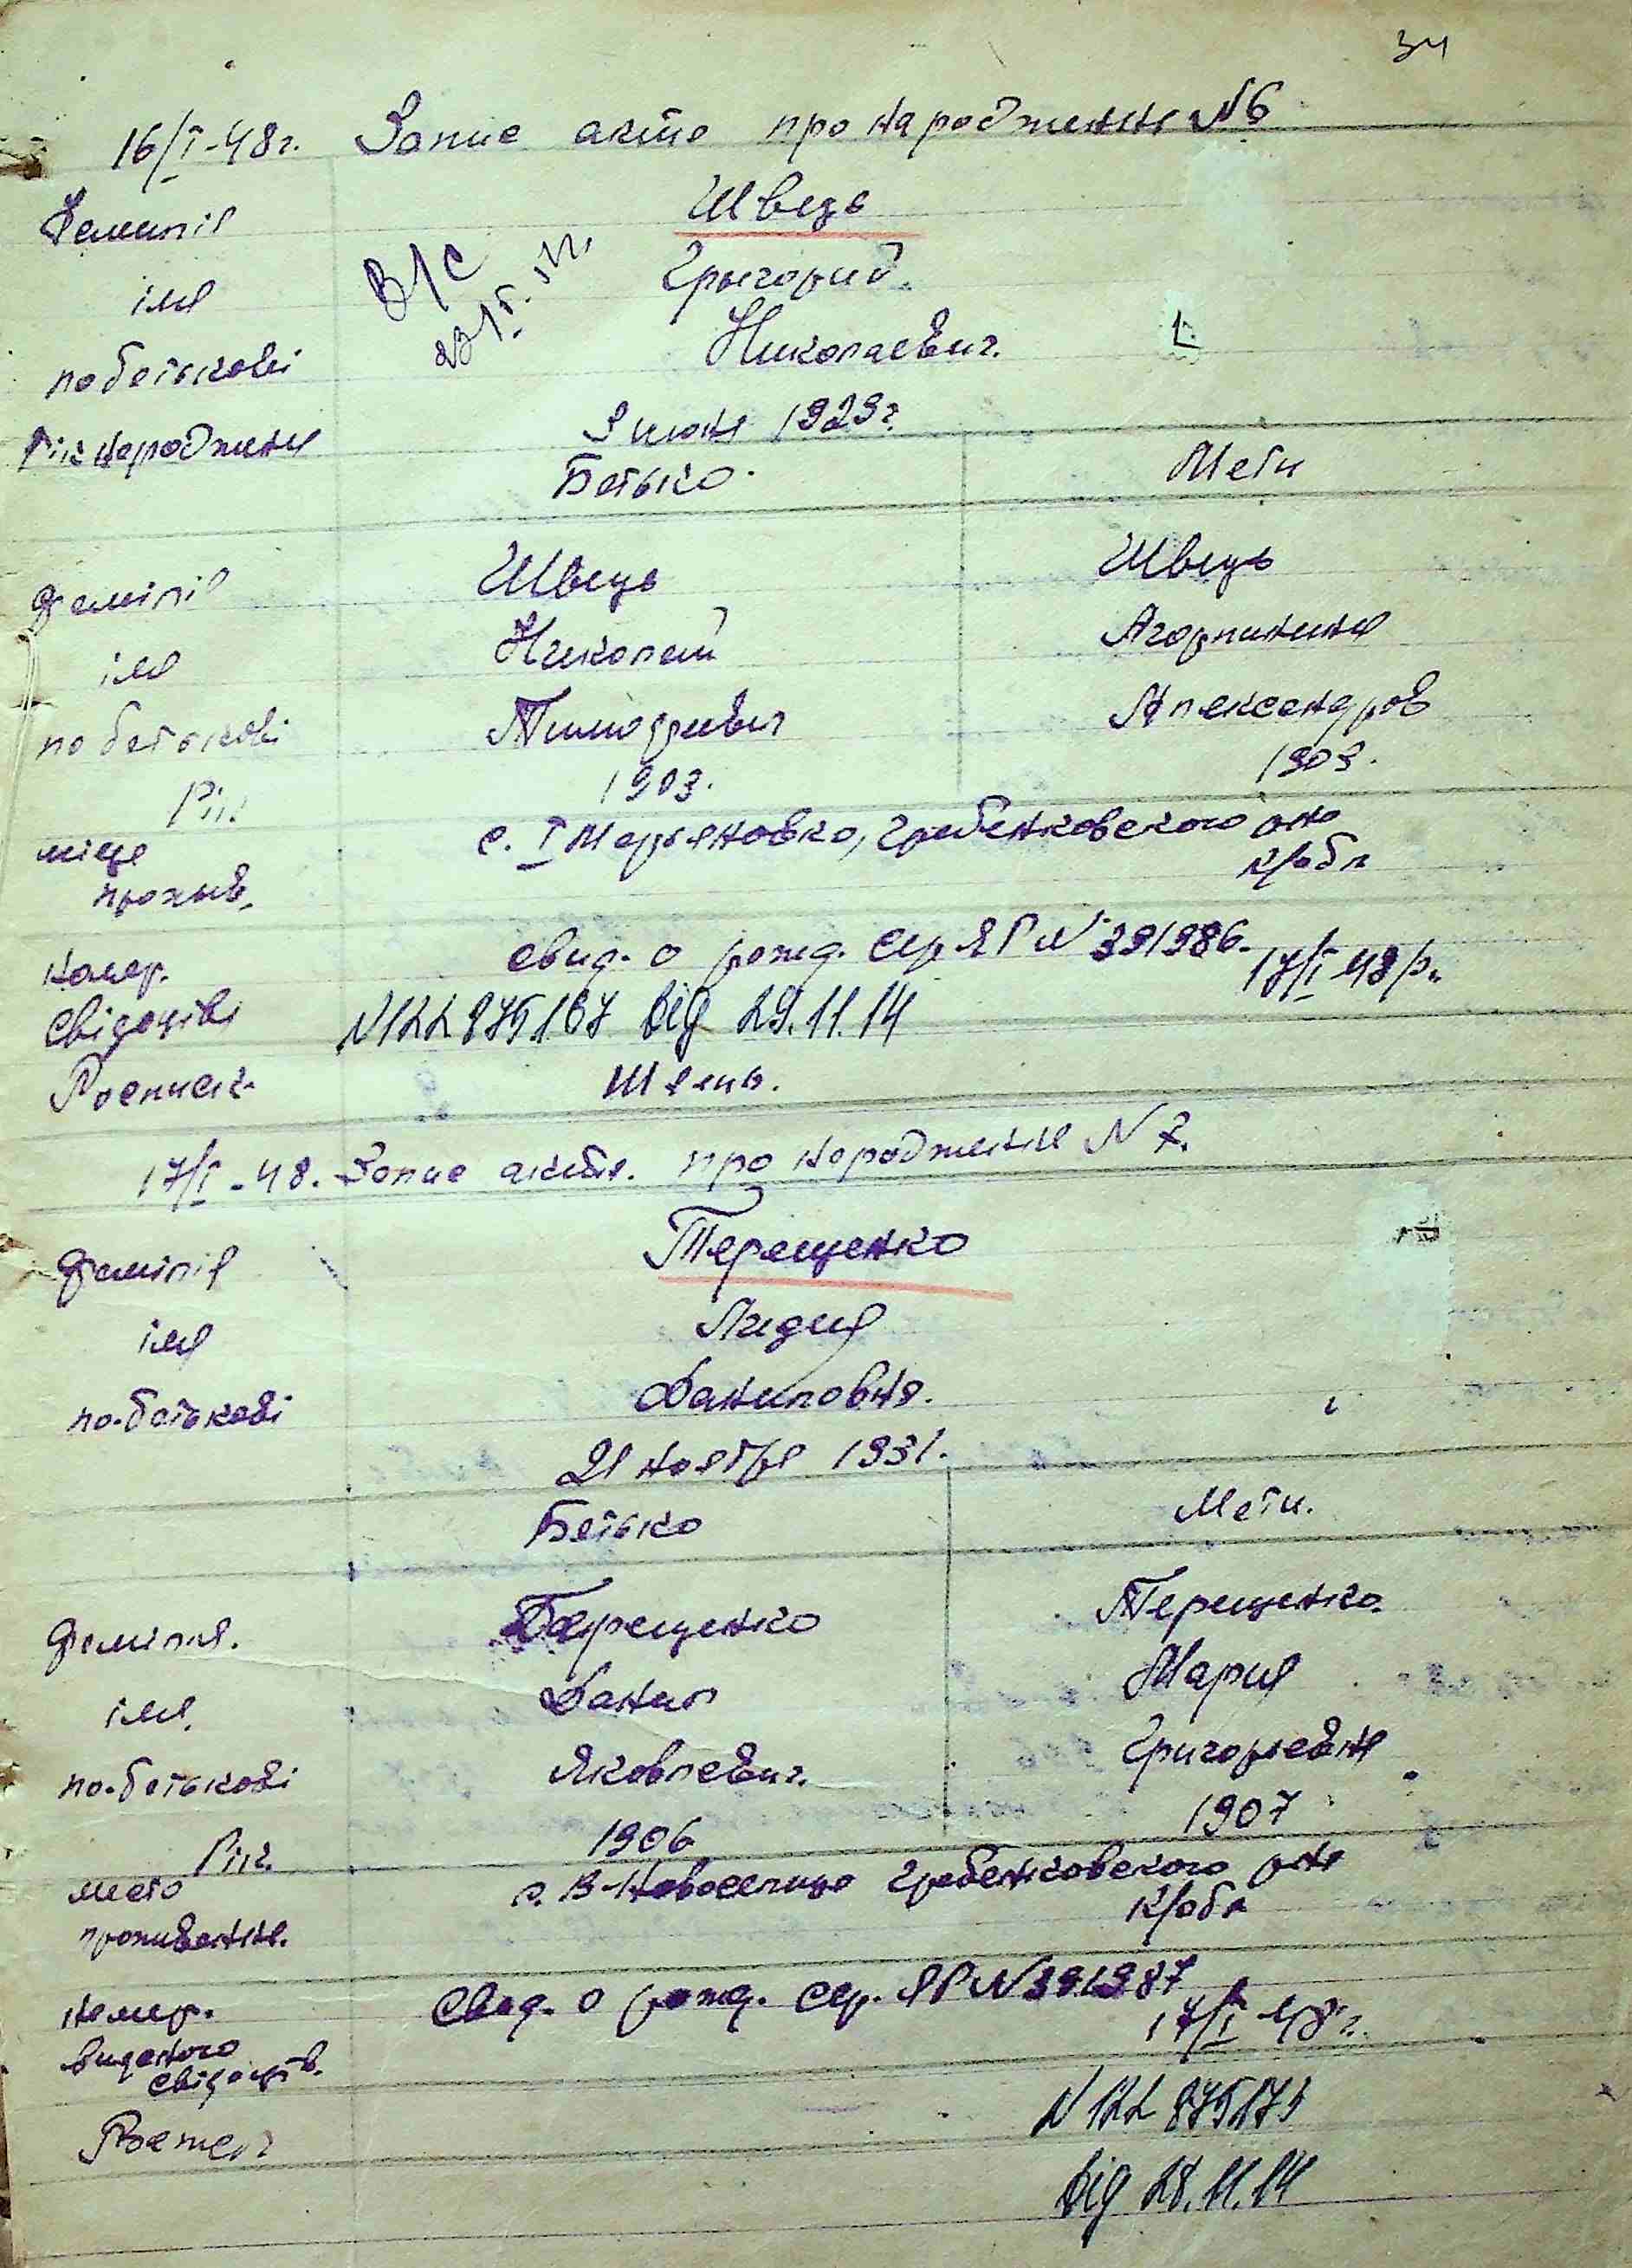 34
16/I-48г. Запис акта про народження №6
Фамилія Швець
імя Григорий.
по батькові Николаевич.
Рік народження 9 июня 1929г.
Батько. Мати
Фамілія Швець Швець
імя Николай
по батькові Тимофеевич Александров
Рік 1903. 1903.
місце
прожив. с. I Марьяновка, Гребенковского рна
К/обл
Номер. свид. о рожд. Сер ЯР № 391986. 17/I 48р.
Свідоцтві №122875167 від 29.11.14
Росписк.
17/I-48. Запис акта. про народження № 7.
Фамілія Терещенко
імя Лидия
по-батькові Даниловна.
21 ноября 1931.
Батько Мати.
Фамілия. Терещенко Терещенко
імя. Данил Мария
по-батькові Яковлевич. Григорьевна
Рік. 1906 1907
место
проживання. с. В-Новоселица Гребенковского рна
К/обл
Номер. Свид. о рожд. Сер. ЯР № 391987
17/I 48г.
виданого
свідоцтв.
№ 122875173
від 28.11.14